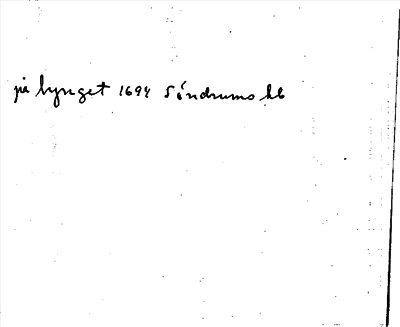 på lynget 1694 Söndrums kb